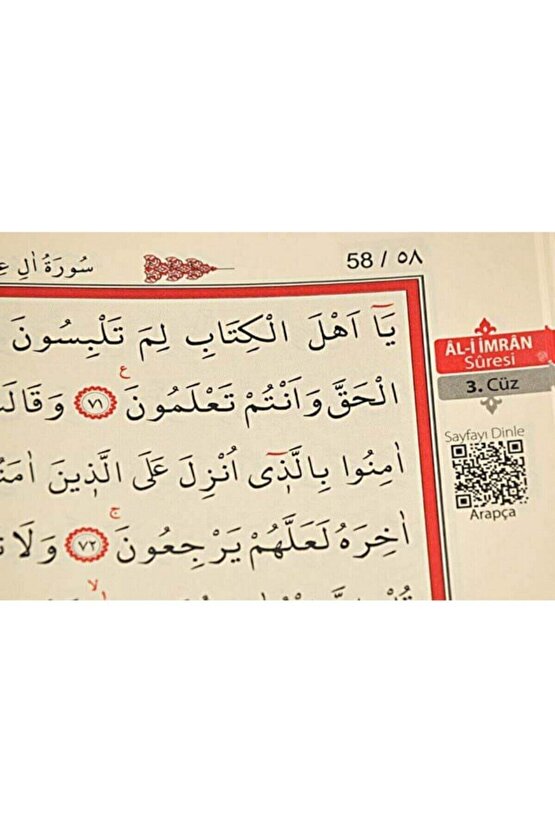 سُورَةُ اٰلِ
58 / ٥٨
يَٓا اَهْلَ الْكِتَابِ لِمَ تَلْبِسُونَ
الْحَقَّ وَاَنْتُمْ تَعْلَمُونَ ﴿٧١﴾ وَقَالَتْ
اٰمِنُوا بِالَّذ۪ٓي اُنْزِلَ عَلَى الَّذ۪ينَ اٰمَنُوا
اٰخِرَهُ لَعَلَّهُمْ يَرْجِعُونَ ﴿٧٢﴾ وَلَا
ÂL-İ İMRÂN
Sûresi
3. Cüz
Sayfayı Dinle
Arapça